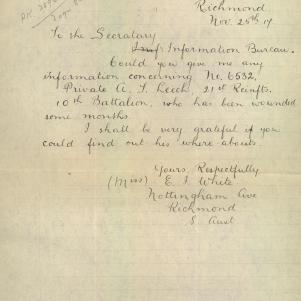 Richmond
Nov. 25th 17
To the Secratary
Information Bureau.
Could you give me any
information concerning No. 6532,
Private A. F. Leech, 21st Reinfts.
10th Battalion, who has been wounded
some months.
I shall be very grateful if you
could find out his where abouts.
Yours Respectfully
(Miss) E. I. White
Nottingham Ave
Richmond
S. Aust